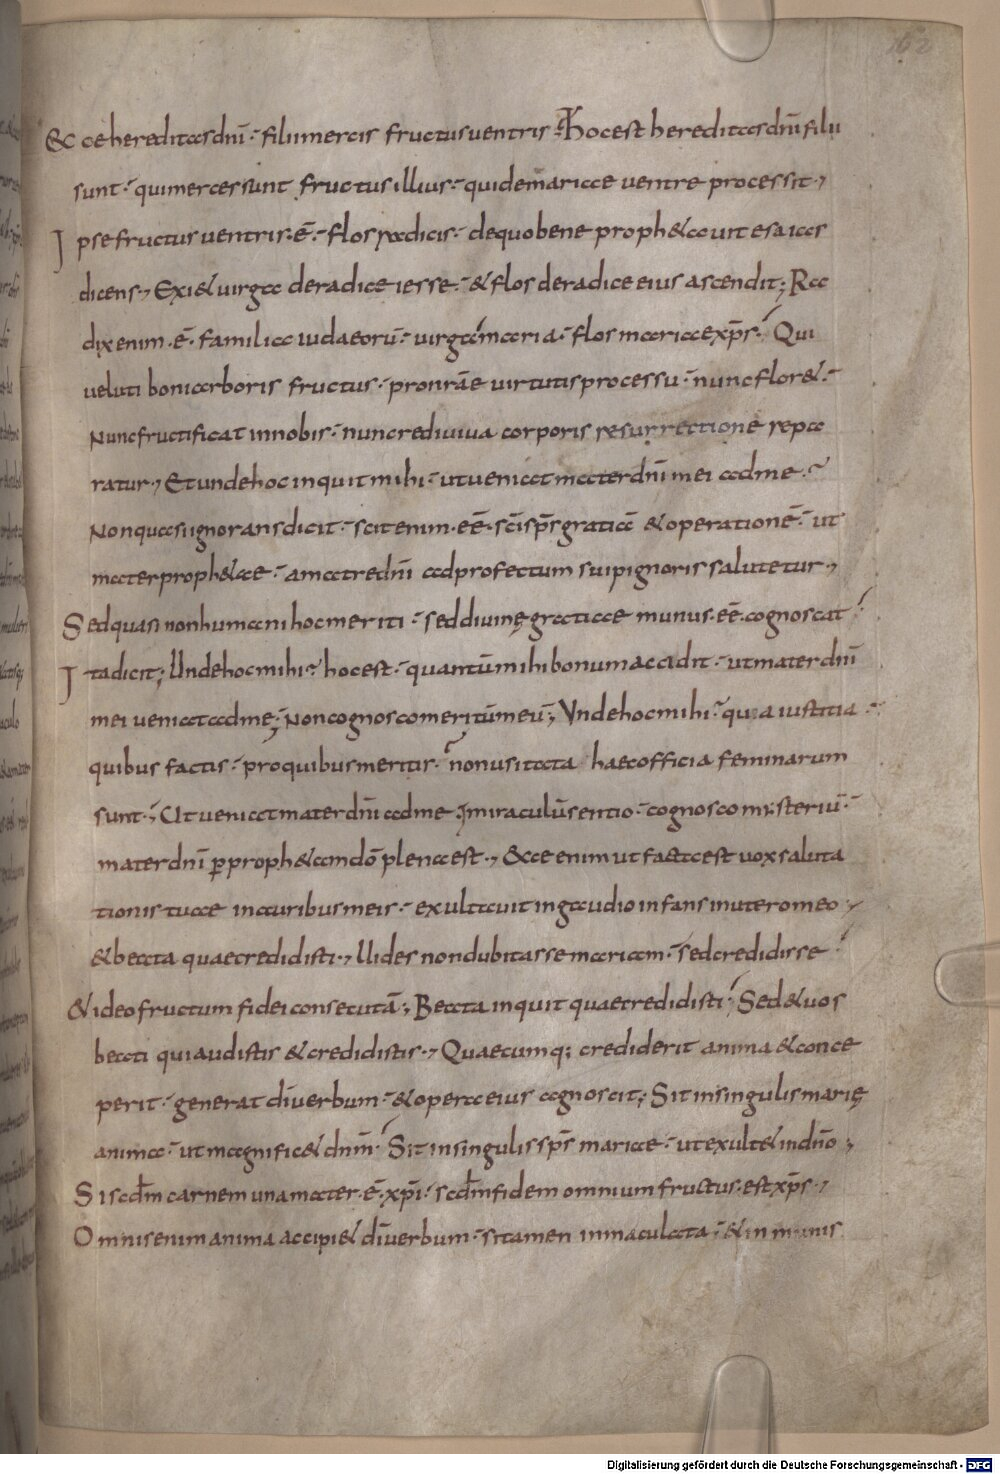 162
Ecce hereditas dn̄i · filii merces fructus ventris · Hoc est hereditas dn̄i filii
sunt · qui merces sunt fructus illius · qui de mariae ventre processit ·,
Ipse fructus ventris · ē · flos radicis · de quo bene proph&auit esaias
dicens ·, Exi& uirga de radice iesse · & flos de radice eius ascendit ; Ra
dix enim · ē · familia iudaeorū · uirga maria · flos mariae xp̄s · Qui
ueluti boni arboris fructus · pro nr̄ae uirtutis processu · nunc flor& ·
Nunc fructificat in nobis · nunc rediuiua corporis resurrectione repa
ratur ·, Et unde hoc inquit mihi · ut ueniat mater dn̄i mei ad me ·
Non quasi ignorans dicit · scit enim · eē · sc̄i sp̄s gratiā & operationē · ut
mater proph&ae · a matre dn̄i ad profectum sui pignoris salutetur ·,
Sed quasi non humani hoc meriti · sed diuinę gratiae munus · eē · cognoscat
Ita dicit ; Unde hoc mihi · hoc est · quantū mihi bonum accidit · ut mater dn̄i
mei ueniat ad me ; Non cognosco meritū meū ; Vnde hoc mihi · qua iustitia ·
quibus factis · pro quibus meritis · non usitata haec officia feminarum
sunt · ; Ut ueniat mater dn̄i ad me · miraculū sentio · cognosco mysteriū ·
mater dn̄i ꝑ proph&ando plena est ·, Ecce enim ut facta est uox saluta
tionis tuae in auribus meis · exultauit in gaudio infans in utero meo ·,
& beata quae credidisti ·, Uides non dubitasse mariam · sed credidisse
& ideo fructum fidei consecutā ; Beata inquit quae credidisti · Sed & uos
beati qui audistis & credidistis ·, Quaecumq; crediderit anima & conce
perit · generat dī uerbum · & opera eius agnoscit ; Sit in singulis marię
anima · ut magnific& dnm̄ · Sit in singulis sp̄s mariae · ut exult& in dn̄o ·,
Si scd̄m carnem una mater · ē · xp̄i · scd̄m fidem omnium fructus · est xp̄s ·,
Omnis enim anima accipi& dī uerbum · si tamen inmaculata · & inmunis
Digitalisierung gefördert durch die Deutsche Forschungsgemeinschaft - DFG